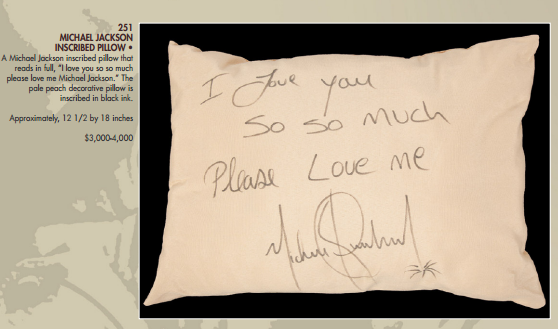 251
MICHAEL JACKSON
INSCRIBED PILLOW •
A Michael Jackson inscribed pillow that
reads in full, "I love you so so much
please love me Michael Jackson." The
pale peach decorative pillow is
inscribed in black ink.
Approximately, 12 1/2 by 18 inches
$3,000-4,000
I Love you
So So Much
Please Love me
Michael Jackson